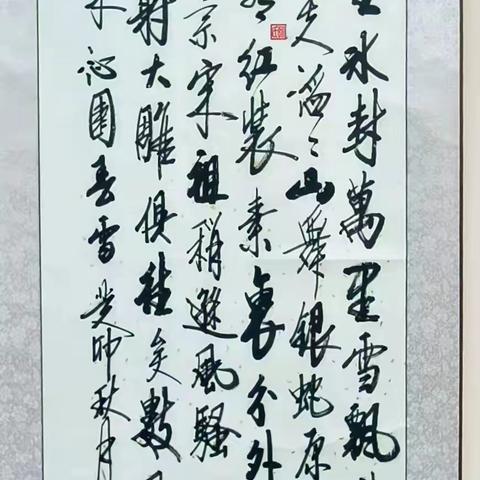 冰封萬里雪飄
失滔〻山舞銀蛇原
紅裝素裹分外
宗宋祖稍遜風騷
射大雕俱往矣數
沁園春雪癸卯秋月